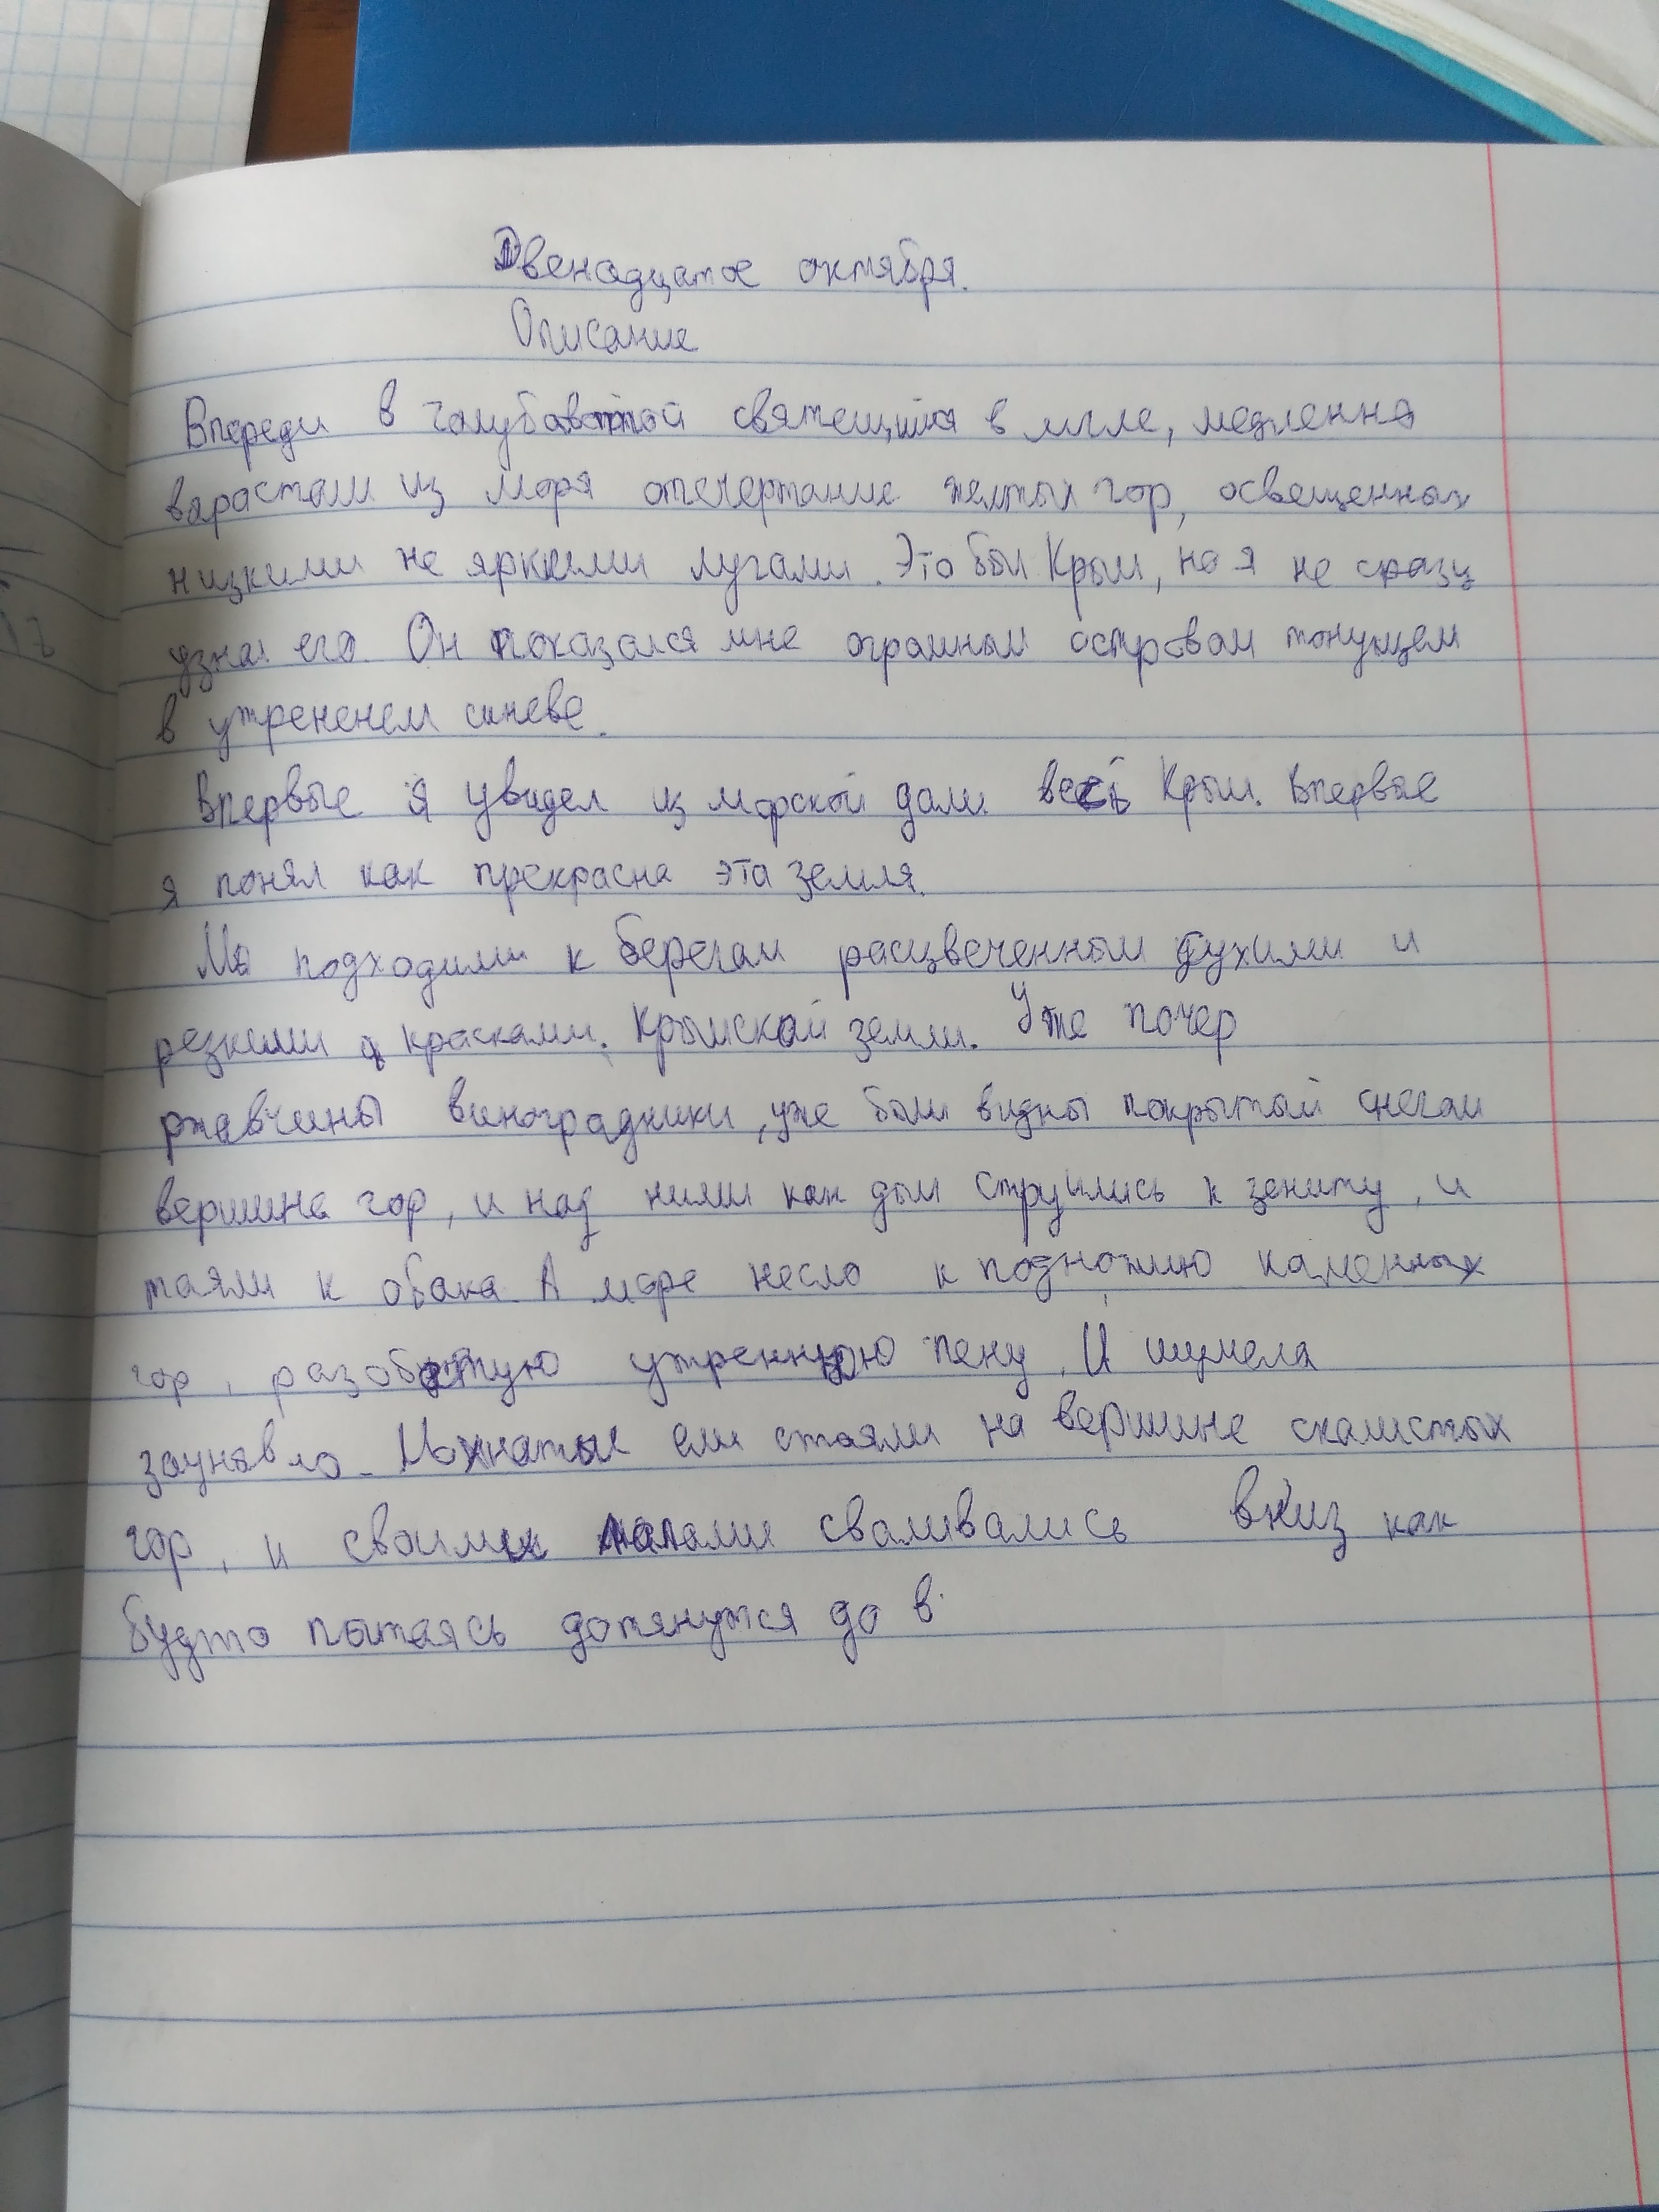 Двенадцатое октября.
Описание
Впереди в голубоватой святещийся в мгле, медленно
варастали из моря отечертание желтых гор, освещенных
низкими не яркими лугами. Это был Крым, но я не сразу
узнал его. Он показался мне огромным островом тонущем
в утрененем синеве.
Впервые я увидел из морской дали весь Крым. Впервые
я понял как прекрасна эта земля.
Мы подходили к берегам расцвеченным сухими и
резкими красками. Крымской земли. Уже почер
ржавчины виноградники, уже были видны покрытый снегом
вершина гор, и над ними как дым струились к зениту, и
таяли к обака. А море несло к подножию каменных
гор, разобстую утреннюю пену. И шумела
заунавло. Мохнатые ели стояли на вершине скалистых
гор, и своими лапами сваливались вниз как
будто пытаясь дотянутся до в